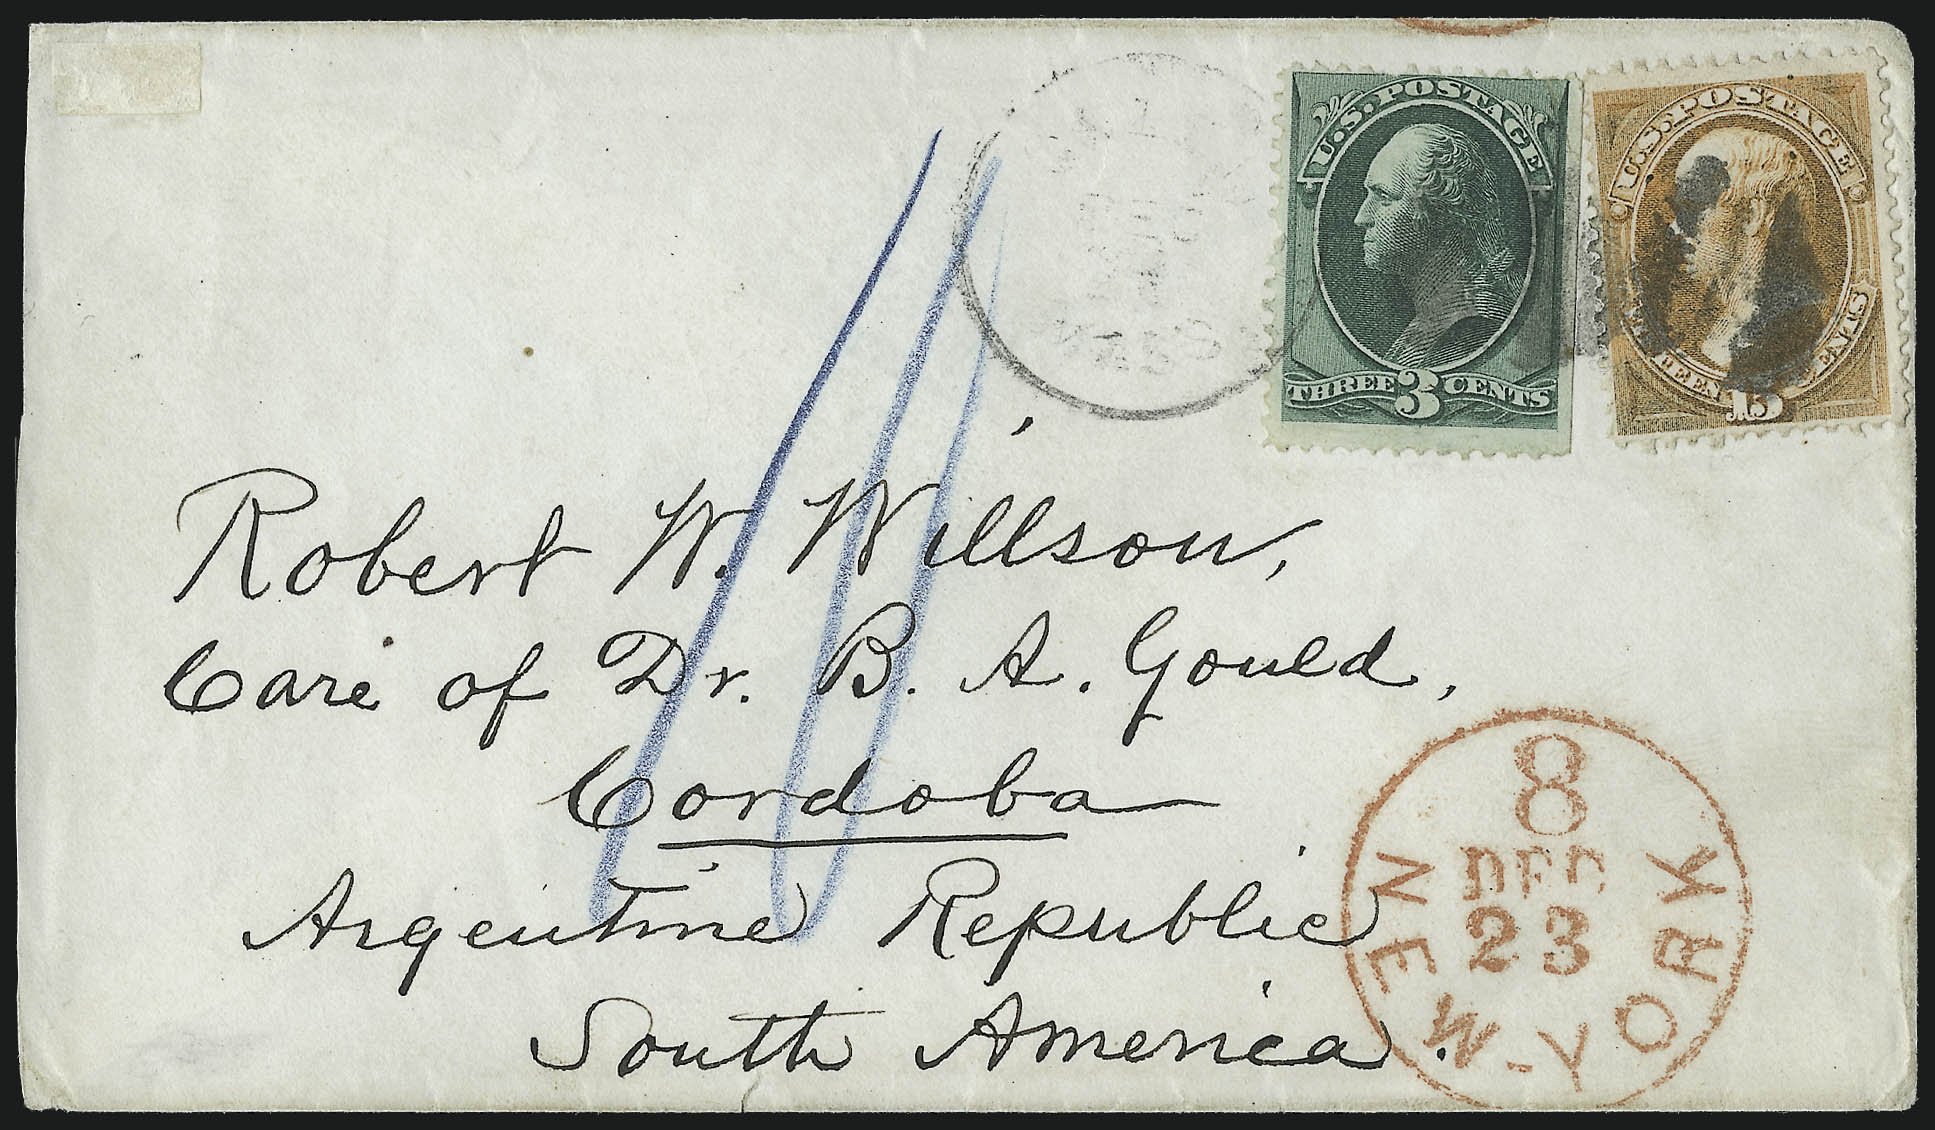 U.S. POSTAGE
THREE 3 CENTS
U.S. POSTAGE
15
10
Robert W. Willson,
Care of Dr. B. A. Gould,
Cordoba
Argentine Republic
South America.
NEW-YORK
8
DEC
23